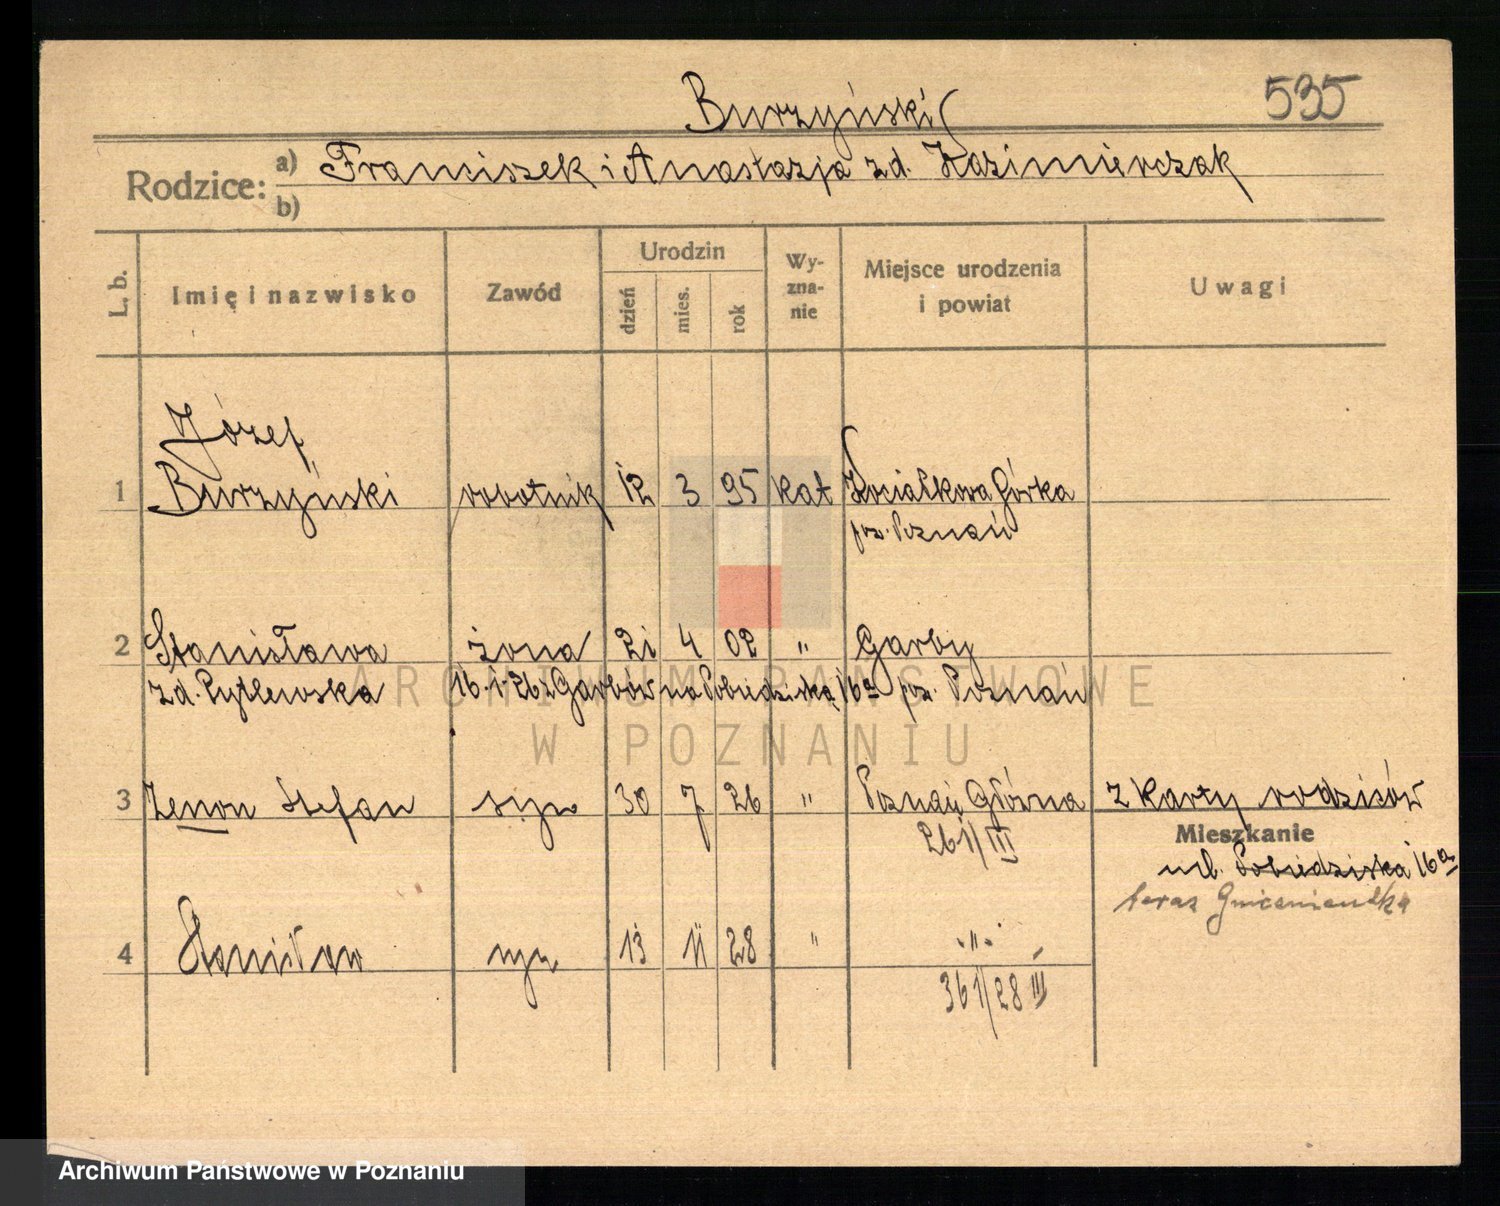 Burzyński
535
Rodzice: a) Franciszek i Anastazja zd. Kazimierczak
b)
L. b. Imię i nazwisko Zawód Urodzin dzień mies. rok Wy-zna-nie Miejsce urodzenia i powiat Uwagi
Józef
1 Burzyński robotnik 12 3 95 kat Kociałkowa Górka
pow. Poznań
2 Stanisława żona 21 4 02 " Garby
zd. Pytlewska 16.1.26 z Garbów na Pobiedziską 16a pow. Poznań
3 Zenon Stefan syn 30 7 26 " Poznań Główna z karty rodziców
261/III
Mieszkanie
ul. Pobiedziska 16a
teraz
4 Stanisław syn 13 11 28 " "
361/28 III
ARCHIWUM PAŃSTWOWE
W POZNANIU
Archiwum Państwowe w Poznaniu